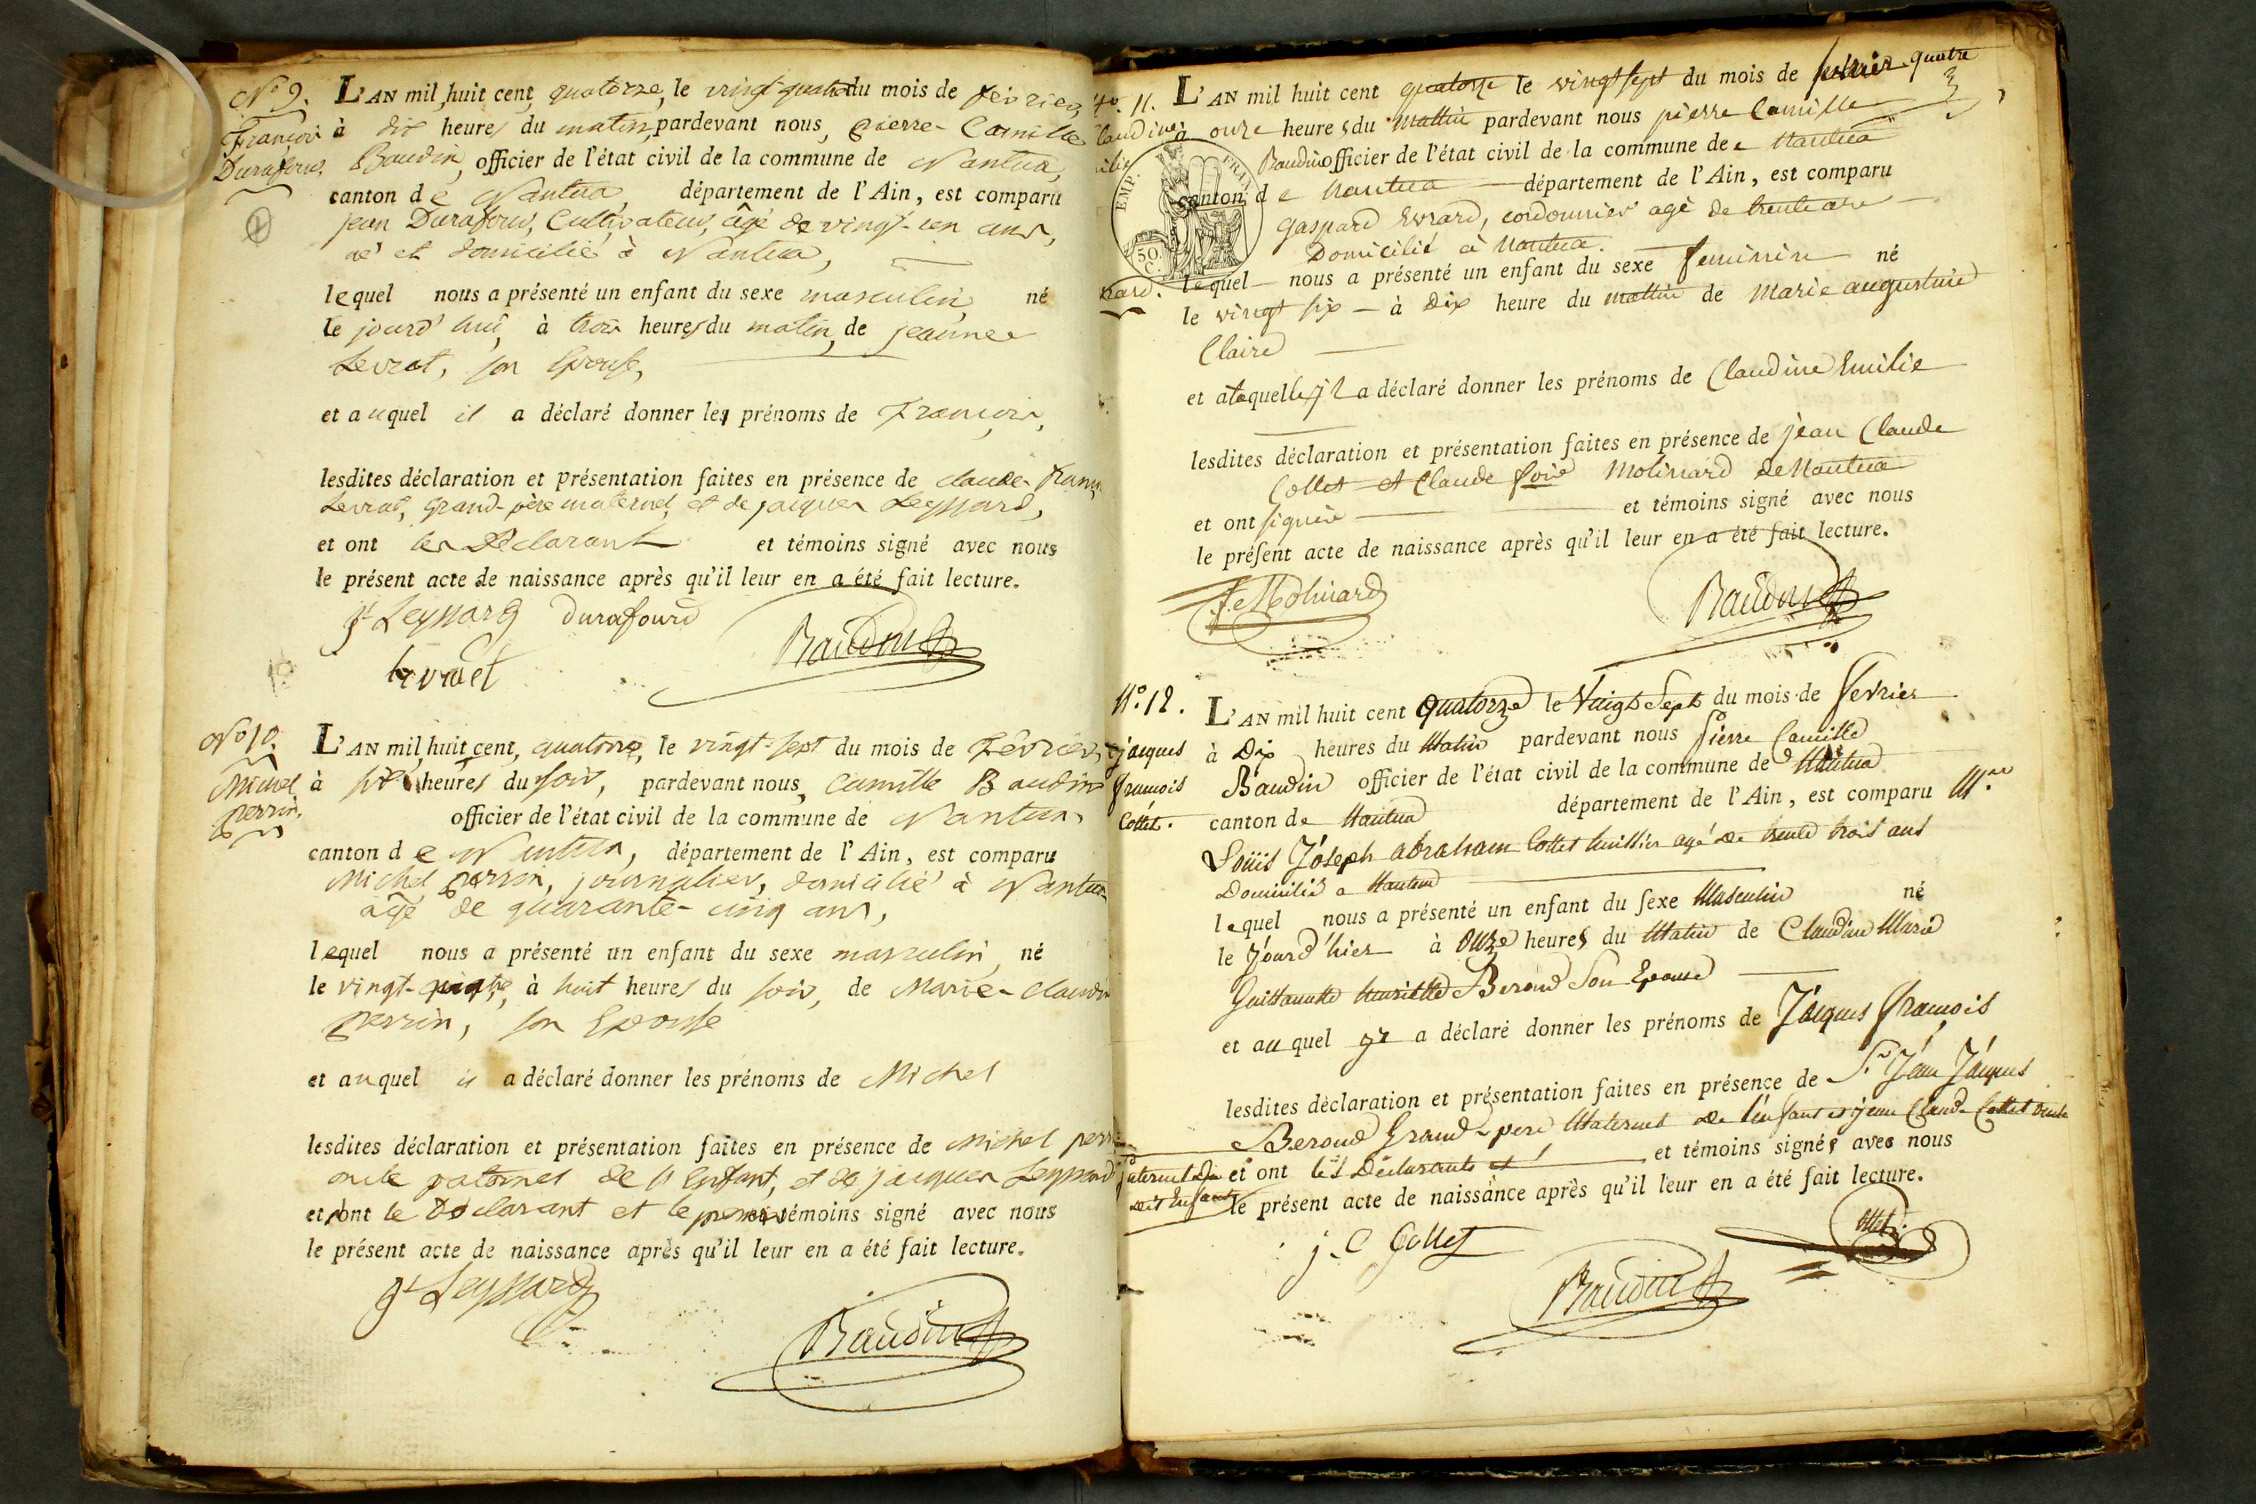 N.º 9.
François
Durafour.
L'AN mil huit cent quatorze, le vingt-quatre du mois de février,
à dix heures du matin, pardevant nous, pierre-Camille
Baudin, officier de l'état civil de la commune de Nantua,
canton de Nantua département de l'Ain, est comparu
jean Durafour, Cultivateur, âgé de vingt-un ans,
né et domicilié à Nantua,
lequel nous a présenté un enfant du sexe masculin, né
le jourd'hui, à trois heures du matin, de jeanne
Levrat, son Epouse,
et auquel il a déclaré donner les prénoms de François,
lesdites déclaration et présentation faites en présence de claude-
Levrat, grand-père maternel, et de jacques Leyssard,
et ont les Déclarant et témoins signé avec nous
le présent acte de naissance après qu'il leur en a été fait lecture.
Jq Leyssard durafourd
Levrat Baudin
N.º 10.
Michel
perrin.
L'AN mil huit cent, quatorze, le vingt-sept du mois de Février,
à heures du soir, pardevant nous, Camille Baudin
officier de l'état civil de la commune de Nantua,
canton de Nantua, département de l'Ain, est comparu
Michel perrin, journalier, domicilié à Nantua
âgé de quarante-cinq ans,
lequel nous a présenté un enfant du sexe masculin, né
le vingt- à huit heures du soir, de Marie-claudine
perrin, son Epouse
et auquel il a déclaré donner les prénoms de Michel
lesdites déclaration et présentation faites en présence de Michel perrin
oncle paternel de l'Enfant, et de jacques Leyssard
et ont le Déclarant et le témoins signé avec nous
le présent acte de naissance après qu'il leur en a été fait lecture.
Jq Leyssard
Baudin
quatre
3
N.º 11.
Claudine
EMP. FRAN.
50 C.
L'AN mil huit cent quatorze le vingt sept du mois de février
à onze heures du mattin pardevant nous pierre Camille
Baudin officier de l'état civil de la commune de Nantua
canton de Nantua département de l'Ain, est comparu
gaspard Evrard, cordonnier agé de trente
Domicilié à Nantua.
lequel nous a présenté un enfant du sexe feminin né
le vingt six à dix heure du mattin de Marie augustine
Claire
et a laquelle il a déclaré donner les prénoms de Claudine Emilie
lesdites déclaration et présentation faites en présence de jean Claude
Collet et Claude Molinard de Nantua
et ont et témoins signé avec nous
le présent acte de naissance après qu'il leur en a été fait lecture.
Molinard Baudin
N.º 12.
jacques
francois
Collet.
L'AN mil huit cent quatorze le Vingt Sept du mois de fevrier
à Dix heures du Matin pardevant nous Pierre Camille
Baudin officier de l'état civil de la commune de Nantua
canton de Nantua département de l'Ain, est comparu M.re
Loüis Joseph abraham Collet huissier agé de trente trois ans
Domicilié a Nantua
lequel nous a présenté un enfant du sexe Masculin né
le jourd'hier à Onze heures du Matin de Claudine Marie
Guillaumette henriette Beroud Son Epouse
et auquel il a déclaré donner les prénoms de Jacques francois
lesdites déclaration et présentation faites en présence de S.r Jean Jacques
Beroud Grand-pere Maternel de l'enfant et jean Claude Collet oncle
paternel du dit Enfant
et ont les Déclarants et et témoins signés avec nous
le présent acte de naissance après qu'il leur en a été fait lecture.
j. C Collet Collet
Baudin